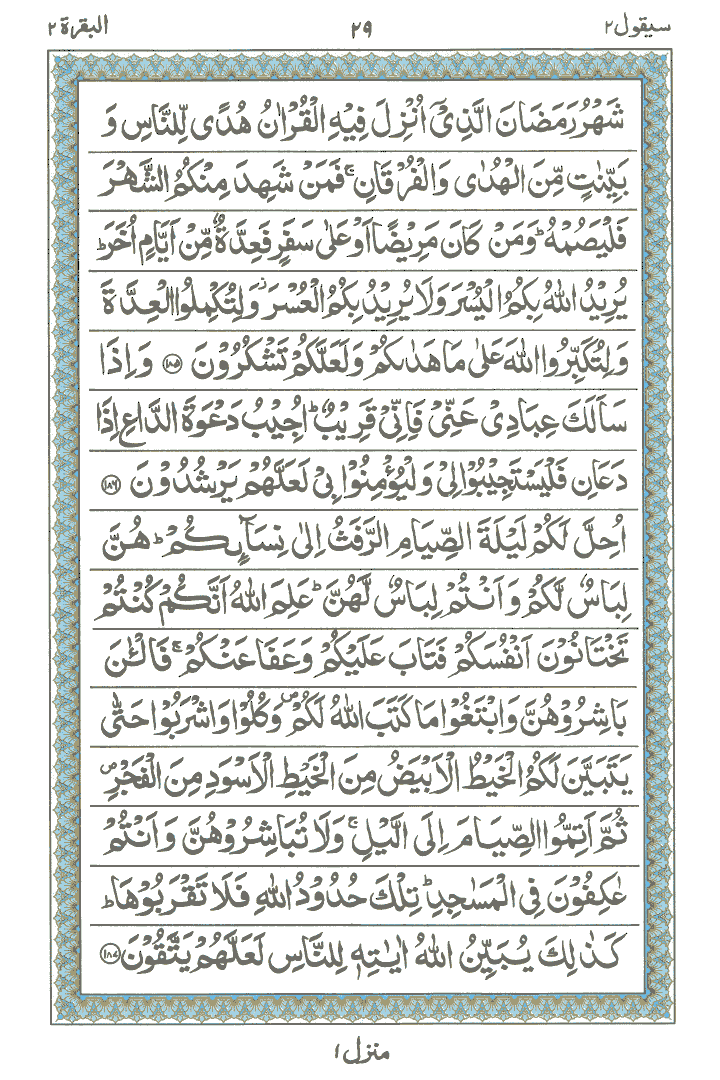 سيقول٢ ٢٩ البقرة٢
شَهْرُ رَمَضَانَ الَّذِىْٓ اُنْزِلَ فِيْهِ الْقُرْاٰنُ هُدًى لِّلنَّاسِ وَ
بَيِّنٰتٍ مِّنَ الْهُدٰى وَالْفُرْقَانِ ۚ فَمَنْ شَهِدَ مِنْكُمُ الشَّهْرَ
فَلْيَصُمْهُ ؕ وَمَنْ كَانَ مَرِيْضًا اَوْ عَلٰى سَفَرٍ فَعِدَّةٌ مِّنْ اَيَّامٍ اُخَرَ ؕ
يُرِيْدُ اللّٰهُ بِكُمُ الْيُسْرَ وَلَا يُرِيْدُ بِكُمُ الْعُسْرَ ۫ وَلِتُكْمِلُوا الْعِدَّةَ
وَلِتُكَبِّرُوا اللّٰهَ عَلٰى مَا هَدٰىكُمْ وَلَعَلَّكُمْ تَشْكُرُوْنَ ۝۱۸۵ وَاِذَا
سَاَلَكَ عِبَادِىْ عَنِّىْ فَاِنِّىْ قَرِيْبٌ ؕ اُجِيْبُ دَعْوَةَ الدَّاعِ اِذَا
دَعَانِ فَلْيَسْتَجِيْبُوْا لِىْ وَلْيُؤْمِنُوْا بِىْ لَعَلَّهُمْ يَرْشُدُوْنَ ۝۱۸۶
اُحِلَّ لَكُمْ لَيْلَةَ الصِّيَامِ الرَّفَثُ اِلٰى نِسَآىِٕكُمْ ؕ هُنَّ
لِبَاسٌ لَّكُمْ وَاَنْتُمْ لِبَاسٌ لَّهُنَّ ؕ عَلِمَ اللّٰهُ اَنَّكُمْ كُنْتُمْ
تَخْتَانُوْنَ اَنْفُسَكُمْ فَتَابَ عَلَيْكُمْ وَعَفَا عَنْكُمْ ۚ فَالْـٰٔنَ
بَاشِرُوْهُنَّ وَابْتَغُوْا مَا كَتَبَ اللّٰهُ لَكُمْ ۪ وَكُلُوْا وَاشْرَبُوْا حَتّٰى
يَتَبَيَّنَ لَكُمُ الْخَيْطُ الْاَبْيَضُ مِنَ الْخَيْطِ الْاَسْوَدِ مِنَ الْفَجْرِ ۪
ثُمَّ اَتِمُّوا الصِّيَامَ اِلَى الَّيْلِ ۚ وَلَا تُبَاشِرُوْهُنَّ وَاَنْتُمْ
عٰكِفُوْنَ فِى الْمَسٰجِدِ ؕ تِلْكَ حُدُوْدُ اللّٰهِ فَلَا تَقْرَبُوْهَا ؕ
كَذٰلِكَ يُبَيِّنُ اللّٰهُ اٰيٰتِهٖ لِلنَّاسِ لَعَلَّهُمْ يَتَّقُوْنَ ۝۱۸۷
منزل١